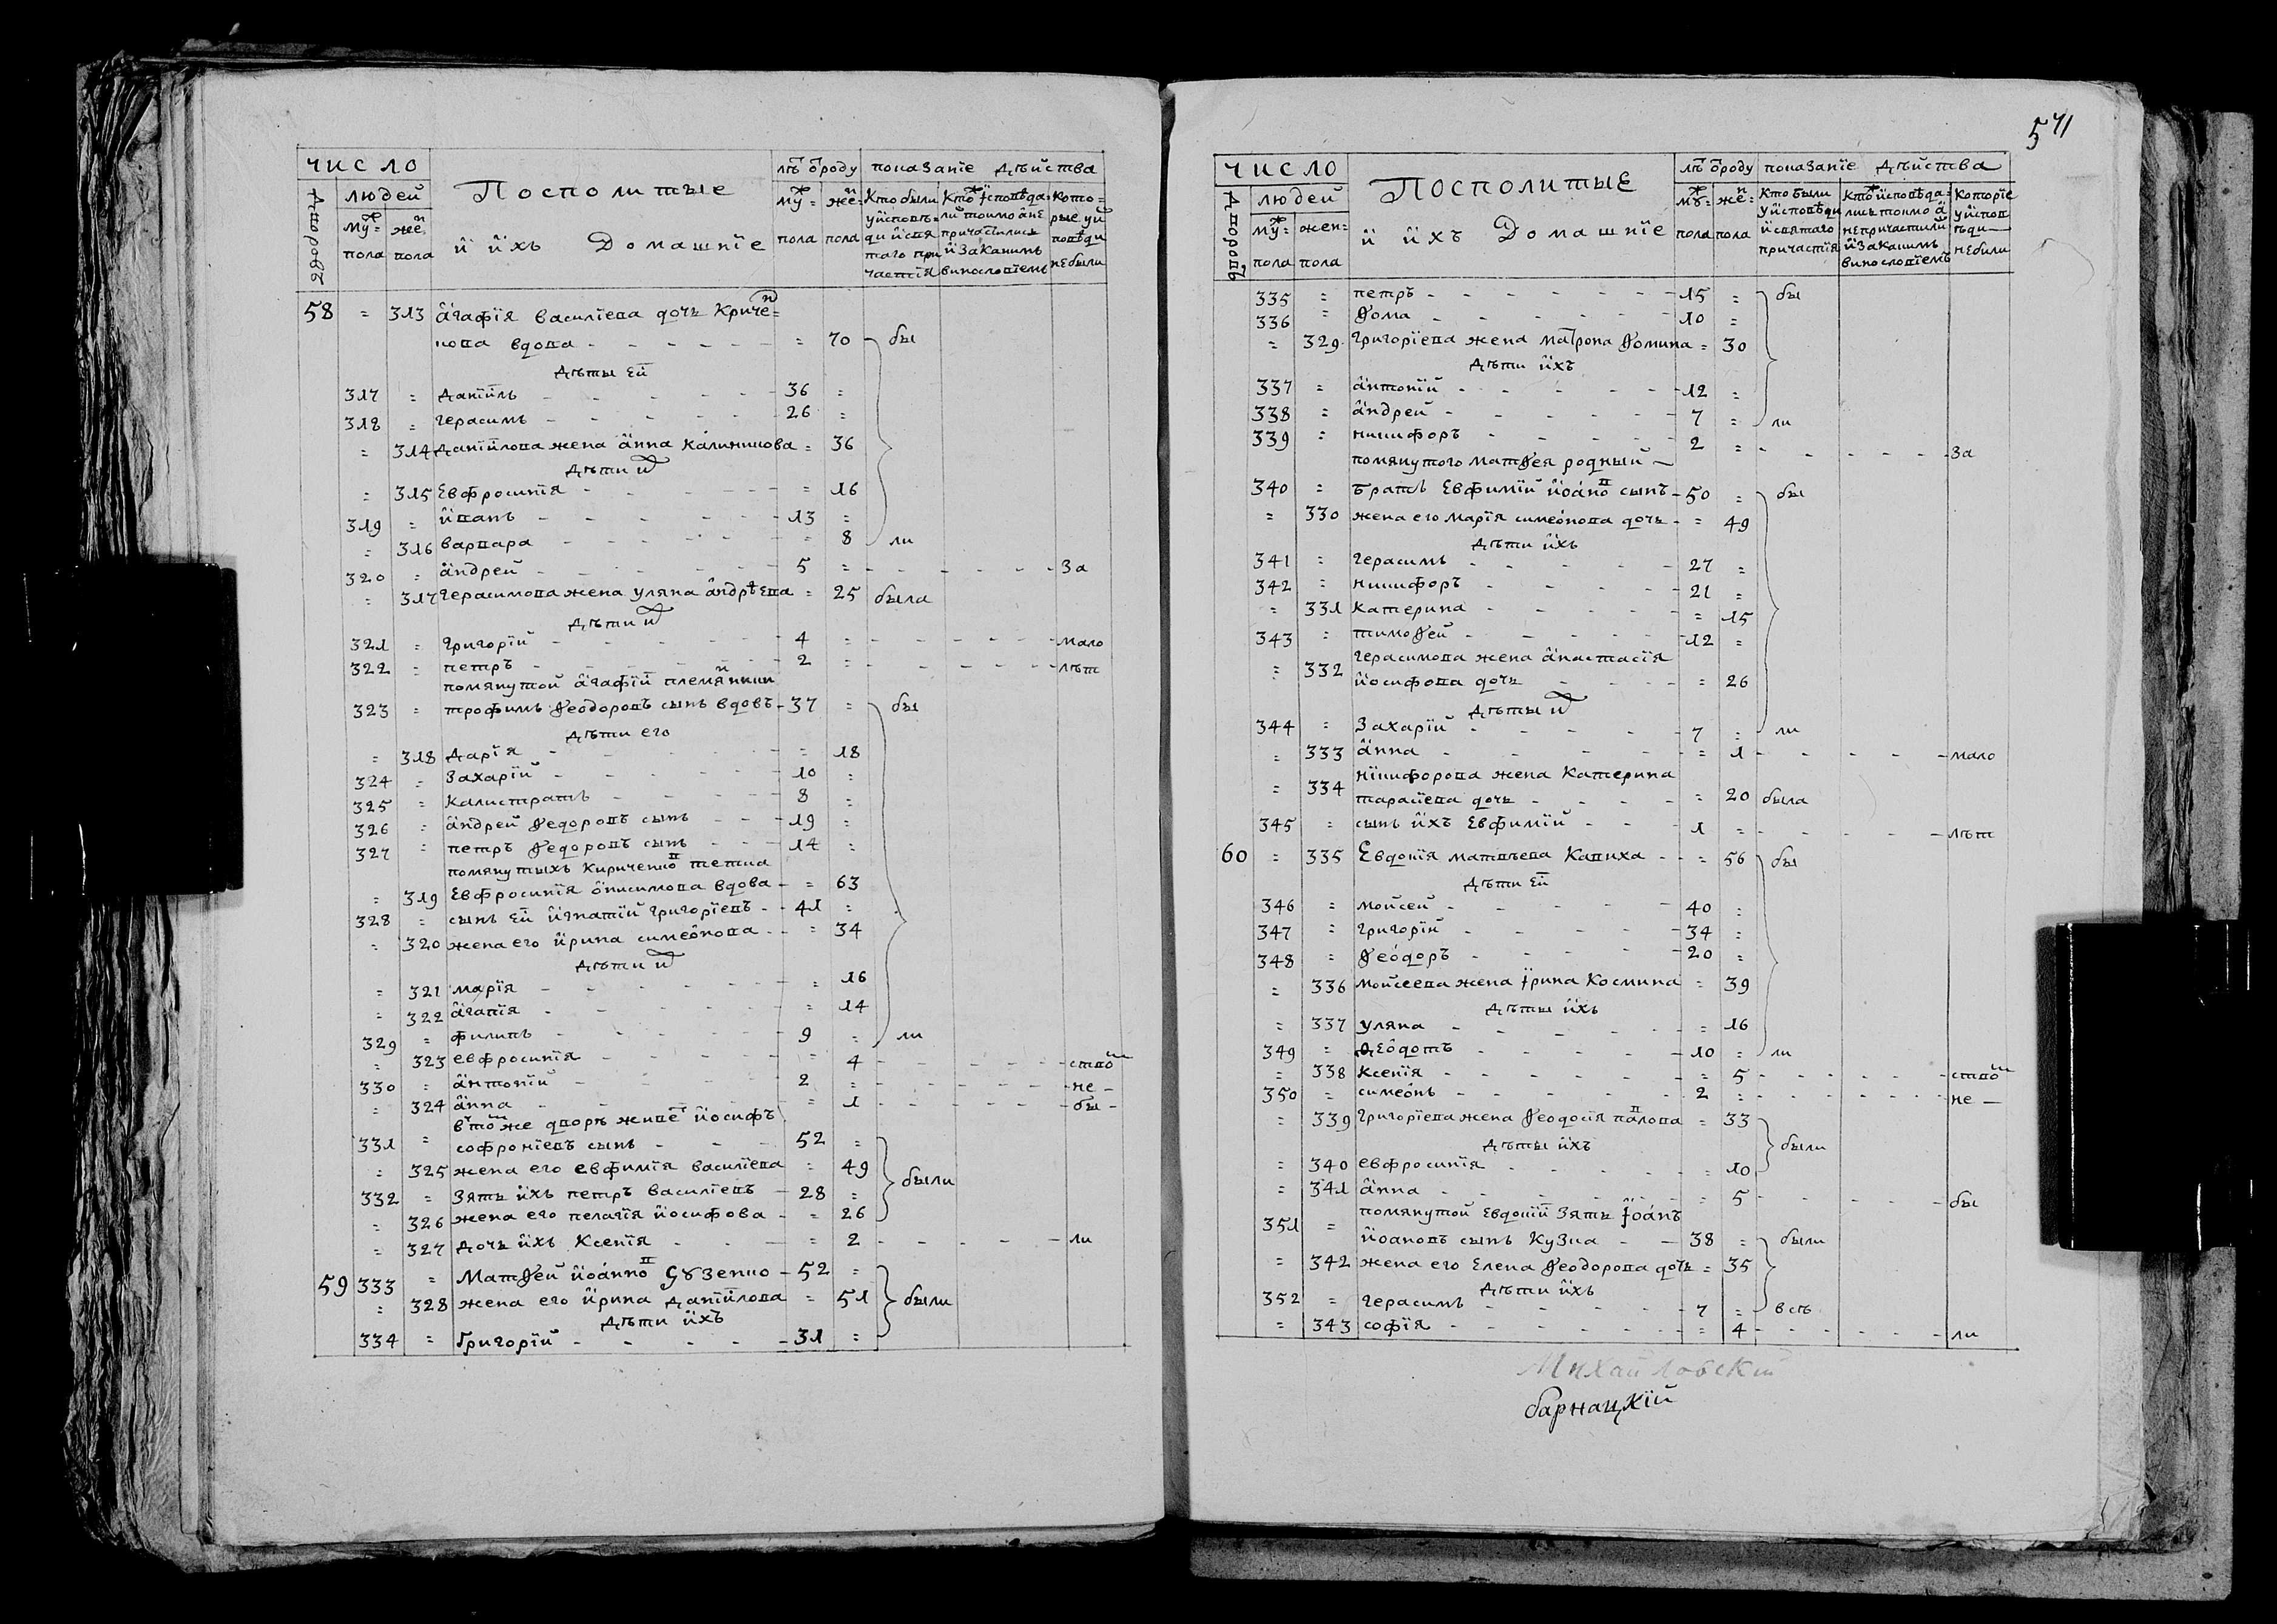 число
Дворовъ
людей
му=
пола
же
пола
Посполитые
и ихъ Домашніе
лѣ ѿ роду
му= пола
же= пола
показаніе дѣйства
Кто были
у исповѣ=
ди и свя
таго при
частія
Кто исповѣда=
ли токмо а не
причастились
и за какимъ
винословіемъ
кото=
рые у и
повѣди
не были
58 = 313 агафія василіева дочь Криче=
нова вдова - = 70 бы
Дѣты ей
317 = даніилъ - 36 =
318 = герасимъ - 26 =
= 314 даніилова жена анна Калиникова = 36
Дѣти и
= 315 Евфросинія - = 16
319 = иванъ - 13 =
= 316 варвара - = 8 ли
320 = андрей - 5 = - За
= 317 герасимова жена уляна андрѣева = 25 была
Дѣти и
321 = григорій - 4 = - мало
322 = петръ - 2 = - лѣт
помянутой агафіи племянники
323 = трофимъ Ѳеодоровъ сынъ вдовъ - 37 = бы
Дѣти его
= 318 Дарія - = 18
324 = Захарій - 10 =
325 = Калистратъ - 8 =
326 = андрей Ѳедоровъ сынъ - 19 =
327 = петръ Ѳедоровъ сынъ - 14 =
помянутыхъ Кириченков тетка
= 319 Евфросинія онисимова вдова - = 63
328 = сынъ ей игнатій григоріевъ - 41 =
= 320 жена его ирина симеонова - = 34
Дѣти и
= 321 марія - = 16
= 322 агапія - = 14
329 = филипъ - 9 = ли
= 323 евфросинія - = 4 - ство
330 = антоній - 2 = - не -
= 324 анна - = 1 - бы -
в то же дворѣ живе иосифъ
331 = софроніевъ сынъ - 52 =
= 325 жена его евфимія василіева = 49 были
332 = Зять ихъ петръ василіевъ - 28 =
= 326 жена его пелагія иосифова - = 26
= 327 Дочь ихъ Ксенія - = 2 - ли
59 333 = Матѳей иоанно Гузенко - 52 =
= 328 жена его ирина даніилова = 51 были
Дѣти ихъ
334 = Григорій - 31 =
571
число
Дворовъ
людей
му=
пола
жен=
пола
Посполитые
и ихъ Домашніе
лѣ ѿ роду
му= пола
же= пола
показаніе дѣйства
Кто были
у исповѣди
и святаго
причастія
Кто исповѣда=
лись токмо а
не причастили
и За какимъ
винословіемъ
Которіе
у испов
ѣди
не били
335 = петръ - 15 = бы
336 = Ѳома - 10 =
= 329 Григоріева жена матрона Ѳомина = 30
Дѣти ихъ
337 = антоній - 12 =
338 = андрей - 7 = ли
339 = никифоръ - 2 = - За
помянутого матѳея родный
340 = братъ Евфимій иоано сынъ - 50 = бы
= 330 жена его марія симеонова дочь - = 49
Дѣти ихъ
341 = герасимъ - 27 =
342 = никифоръ - 21 =
= 331 Катерина - = 15
343 = тимоѳей - 12 =
герасимова жена анастасія
= 332 иосифова дочь - = 26
Дѣты и
344 = Захарій - 7 = ли
= 333 анна - = 1 - мало
нікифорова жена Катерина
= 334 тарасіева дочь - = 20 была
345 = сынъ ихъ Евфимій - 1 = - лѣт
60 = 335 Евдокія матвѣева Капиха - = 56 бы
Дѣти ей
346 = мойсей - 40 =
347 = григорій - 34 =
348 = Ѳеодоръ - 20 =
= 336 мойсеева жена ірина Космина = 39
Дѣты ихъ
= 337 уляна - = 16
349 = Ѳеодотъ - 10 = ли
= 338 Ксенія - = 5 - ство
350 = симеонъ - 2 = - не —
= 339 григоріева жена Ѳеодосія павлова = 33
Дѣты ихъ
были
= 340 евфросинія - = 10
= 341 анна - = 5 - бы
помянутой Евдокіи Зять іоанъ
351 = иоановъ сынъ Кузка - 38 = были
= 342 жена его Елена Ѳеодорова дочь = 35
Дѣти ихъ
352 = герасимъ - 7 = всѣ
= 343 софія - = 4 - ли
Михайловскій
барнацкій